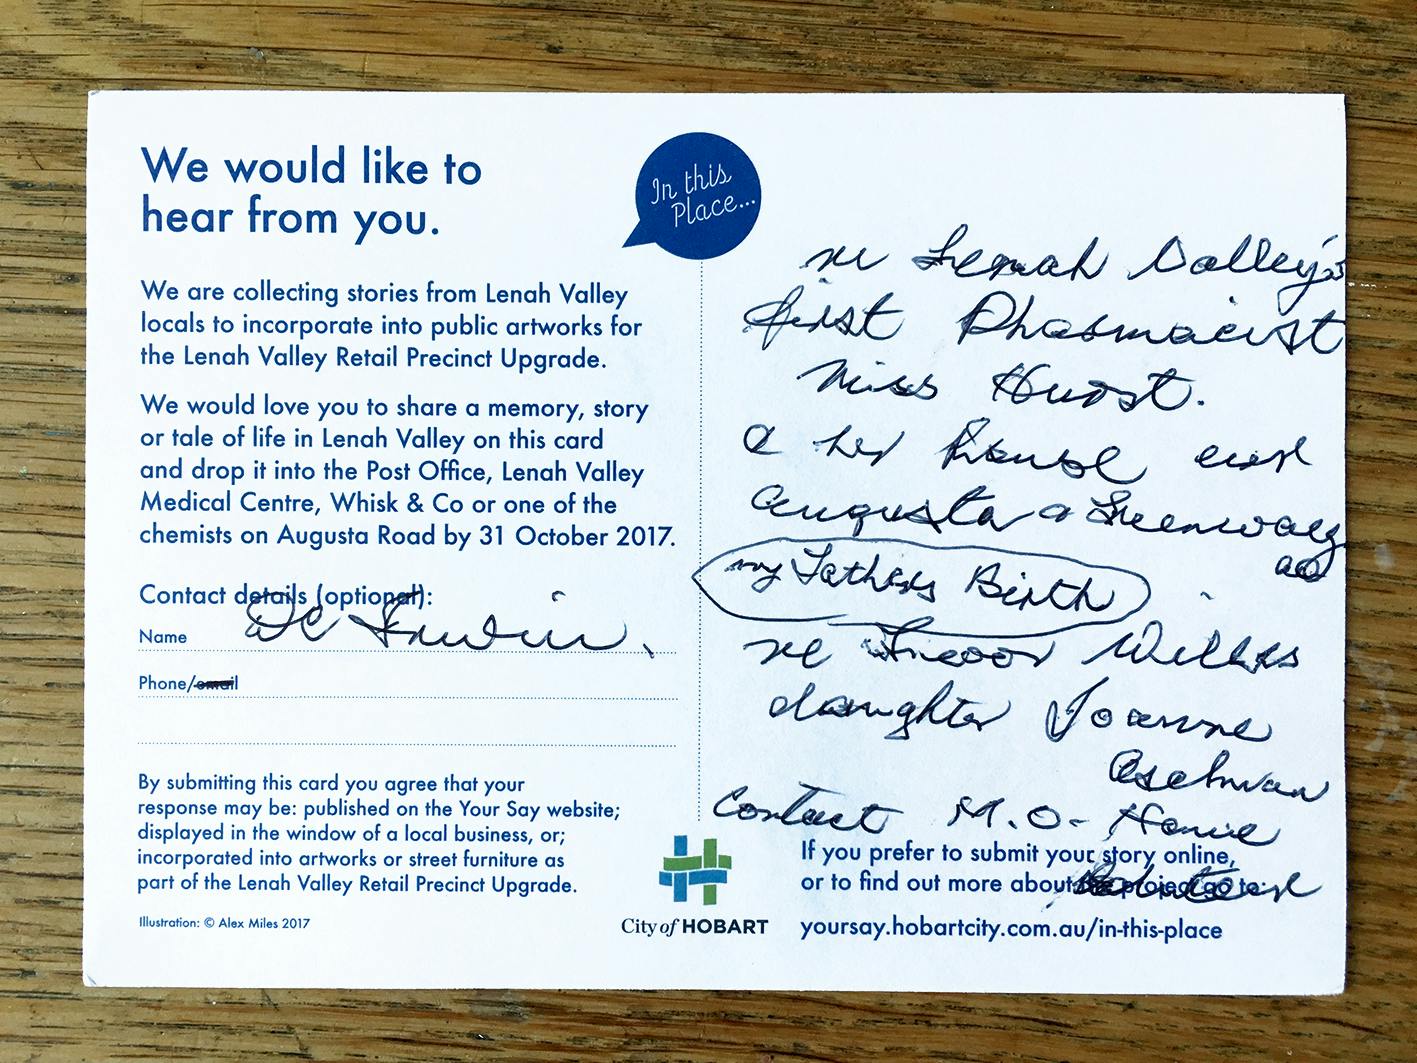 We would like to
hear from you.
In this
Place...
We are collecting stories from Lenah Valley
locals to incorporate into public artworks for
the Lenah Valley Retail Precinct Upgrade.
We would love you to share a memory, story
or tale of life in Lenah Valley on this card
and drop it into the Post Office, Lenah Valley
Medical Centre, Whisk & Co or one of the
chemists on Augusta Road by 31 October 2017.
Contact details (optional):
Name
Phone/email
By submitting this card you agree that your
response may be: published on the Your Say website;
displayed in the window of a local business, or;
incorporated into artworks or street furniture as
part of the Lenah Valley Retail Precinct Upgrade.
Illustration: © Alex Miles 2017
re Lenah Valley's
first Pharmacist
Miss Hurst.
her house
Augusta Greenway
my Fathers Birth
re Trevor
daughter Joanne
Contact M.O.
If you prefer to submit your story online,
or to find out more about the project go to:
yoursay.hobartcity.com.au/in-this-place
City of HOBART